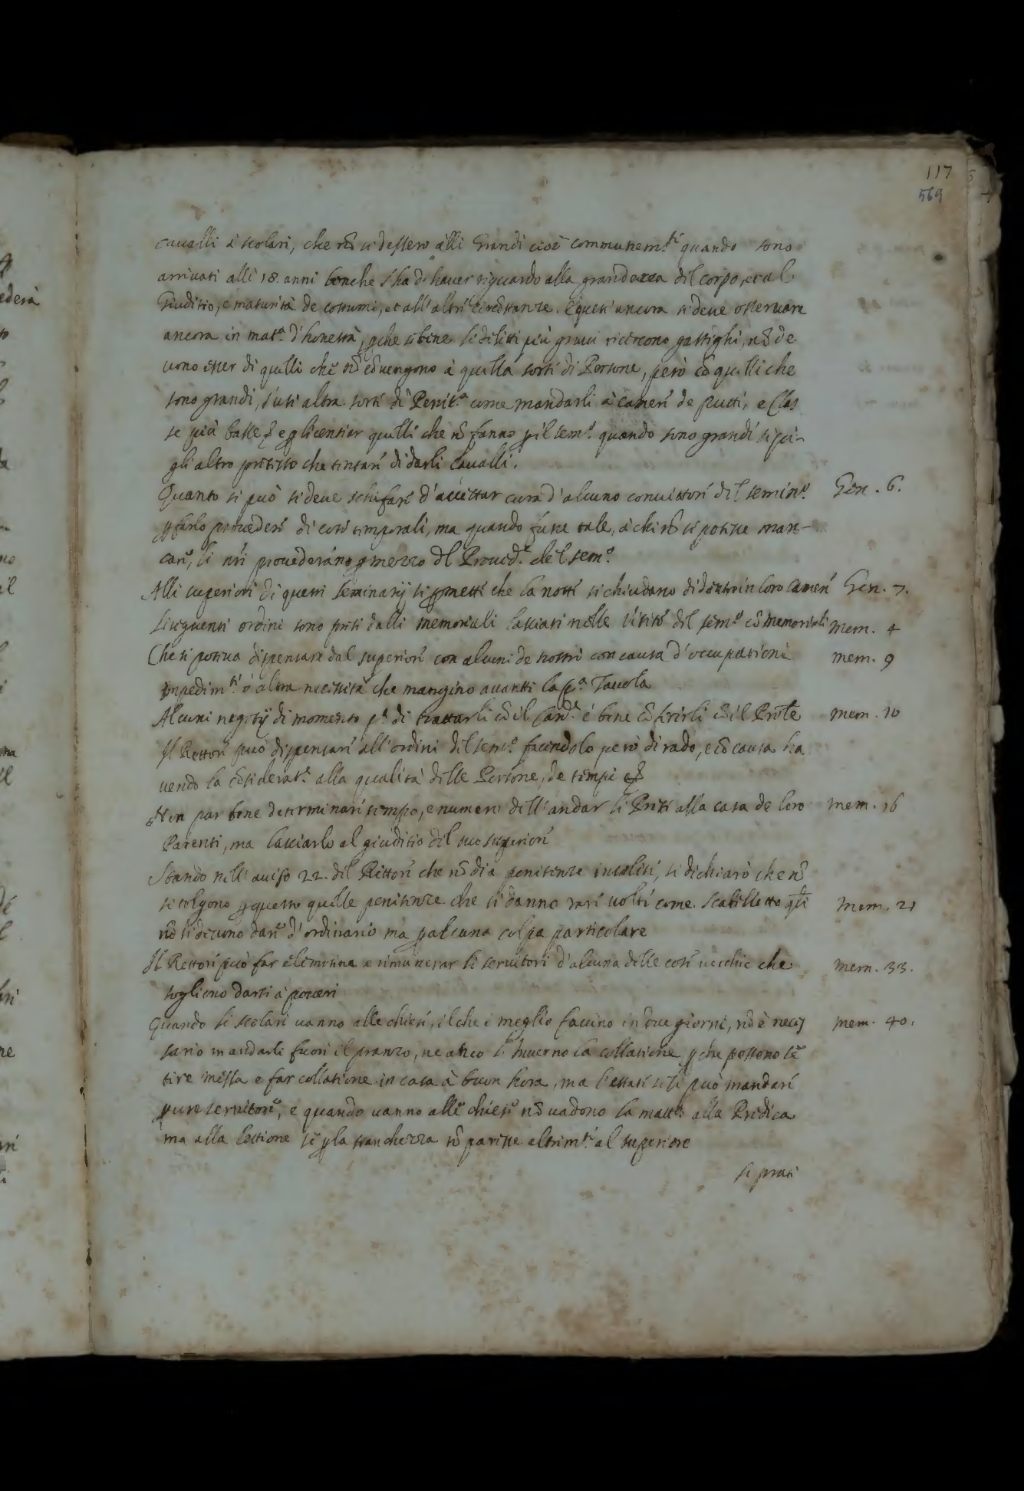 117
569
cavalli à scolari, che nõ si dessero alli Grandi cioè communem.te quando sono
arrivati alli 18. anni benche s'ha di haver riguardo alla grandezza del corpo, et al
Giuditio, e maturità de costumi, et all'altre circostanze. E questi ancora si deve osservare
ancora in mat.a d'honestà, pche se bene li delitti più gravi ricercono gastighi, nõ de
vono esser di quelli che nõ cõvengono à quella sorte di Persone, però cõ quelli che
sono grandi, s'usi altra sorte di Penit.a come mandarli à camere de putti, e Clas
se più basse, e licentiar quelli che nõ fanno p il sem.o quando sono grandi si pi-
gli altro pretesto che tentare di darli cavalli.
Quanto si può si deve schifare d'accettar cura d'alcuno convictore del semin.o Gen. 6.
p farlo provedere di cose temporali, ma quando fusse tale, à chi nõ si potesse man-
care, li nri provederanno p mezzo del Proved.e del sem.o
Alli superiori di questi seminarij si pmette che la notte si chiudano di dentro in loro camere Gen. 7.
Li seguenti ordini sono presi dalli memoriali lasciati nelle visite del sem.o cõ memoriali mem. 4
Che si possa dispensare dal superiore con alcuni de nostri con causa d'occupationi mem. 9
impedim.ti ò altra necessità che mangino avanti la p.a Tavola
Alcuni negotij di momento p.a di trattarli cõ il Car.le è bene cõferirli cõ il Prõle mem. 10
Il Rettore può dispensare all'ordini del sem.o facendolo però di rado, e cõ causa ha
vendo la cõsiderat.e alla qualità delle Persone, de tempi &
Non par bene determinare tempo, e numero dell'andar li Preti alla casa de loro mem. 16
Parenti, ma lasciarlo al giuditio del suo superiore
Stando nell'aviso 22. del Rettore che nõ dia penitenze insolite, si dichiarò che nõ
si tolgono p questo quelle penitenze che si danno rare volte come scabilletto qli mem. 21
nõ si devono dare d'ordinario ma p alcuna colpa particolare
Il Rettore può far elimosina e rimunerar li servitori d'alcuna delle cose vecchie che mem. 33.
sogliono darsi à poveri
Quando li scolari vanno alle chiese, il che è meglio faccino in due giorni, nõ è neces mem. 40.
sario mandarli fuori il pranzo, ne anco l'Inverno la collatione, p che possono sẽ
tire messa e far collatione in casa à buon hora, ma l'estate se li può mandare
pure servitore, e quando vanno alle chiese nõ vadono la matt.a alla Predica
ma alla lettione se p la stanchezza nõ paresse altrim.te al superiore
si prati